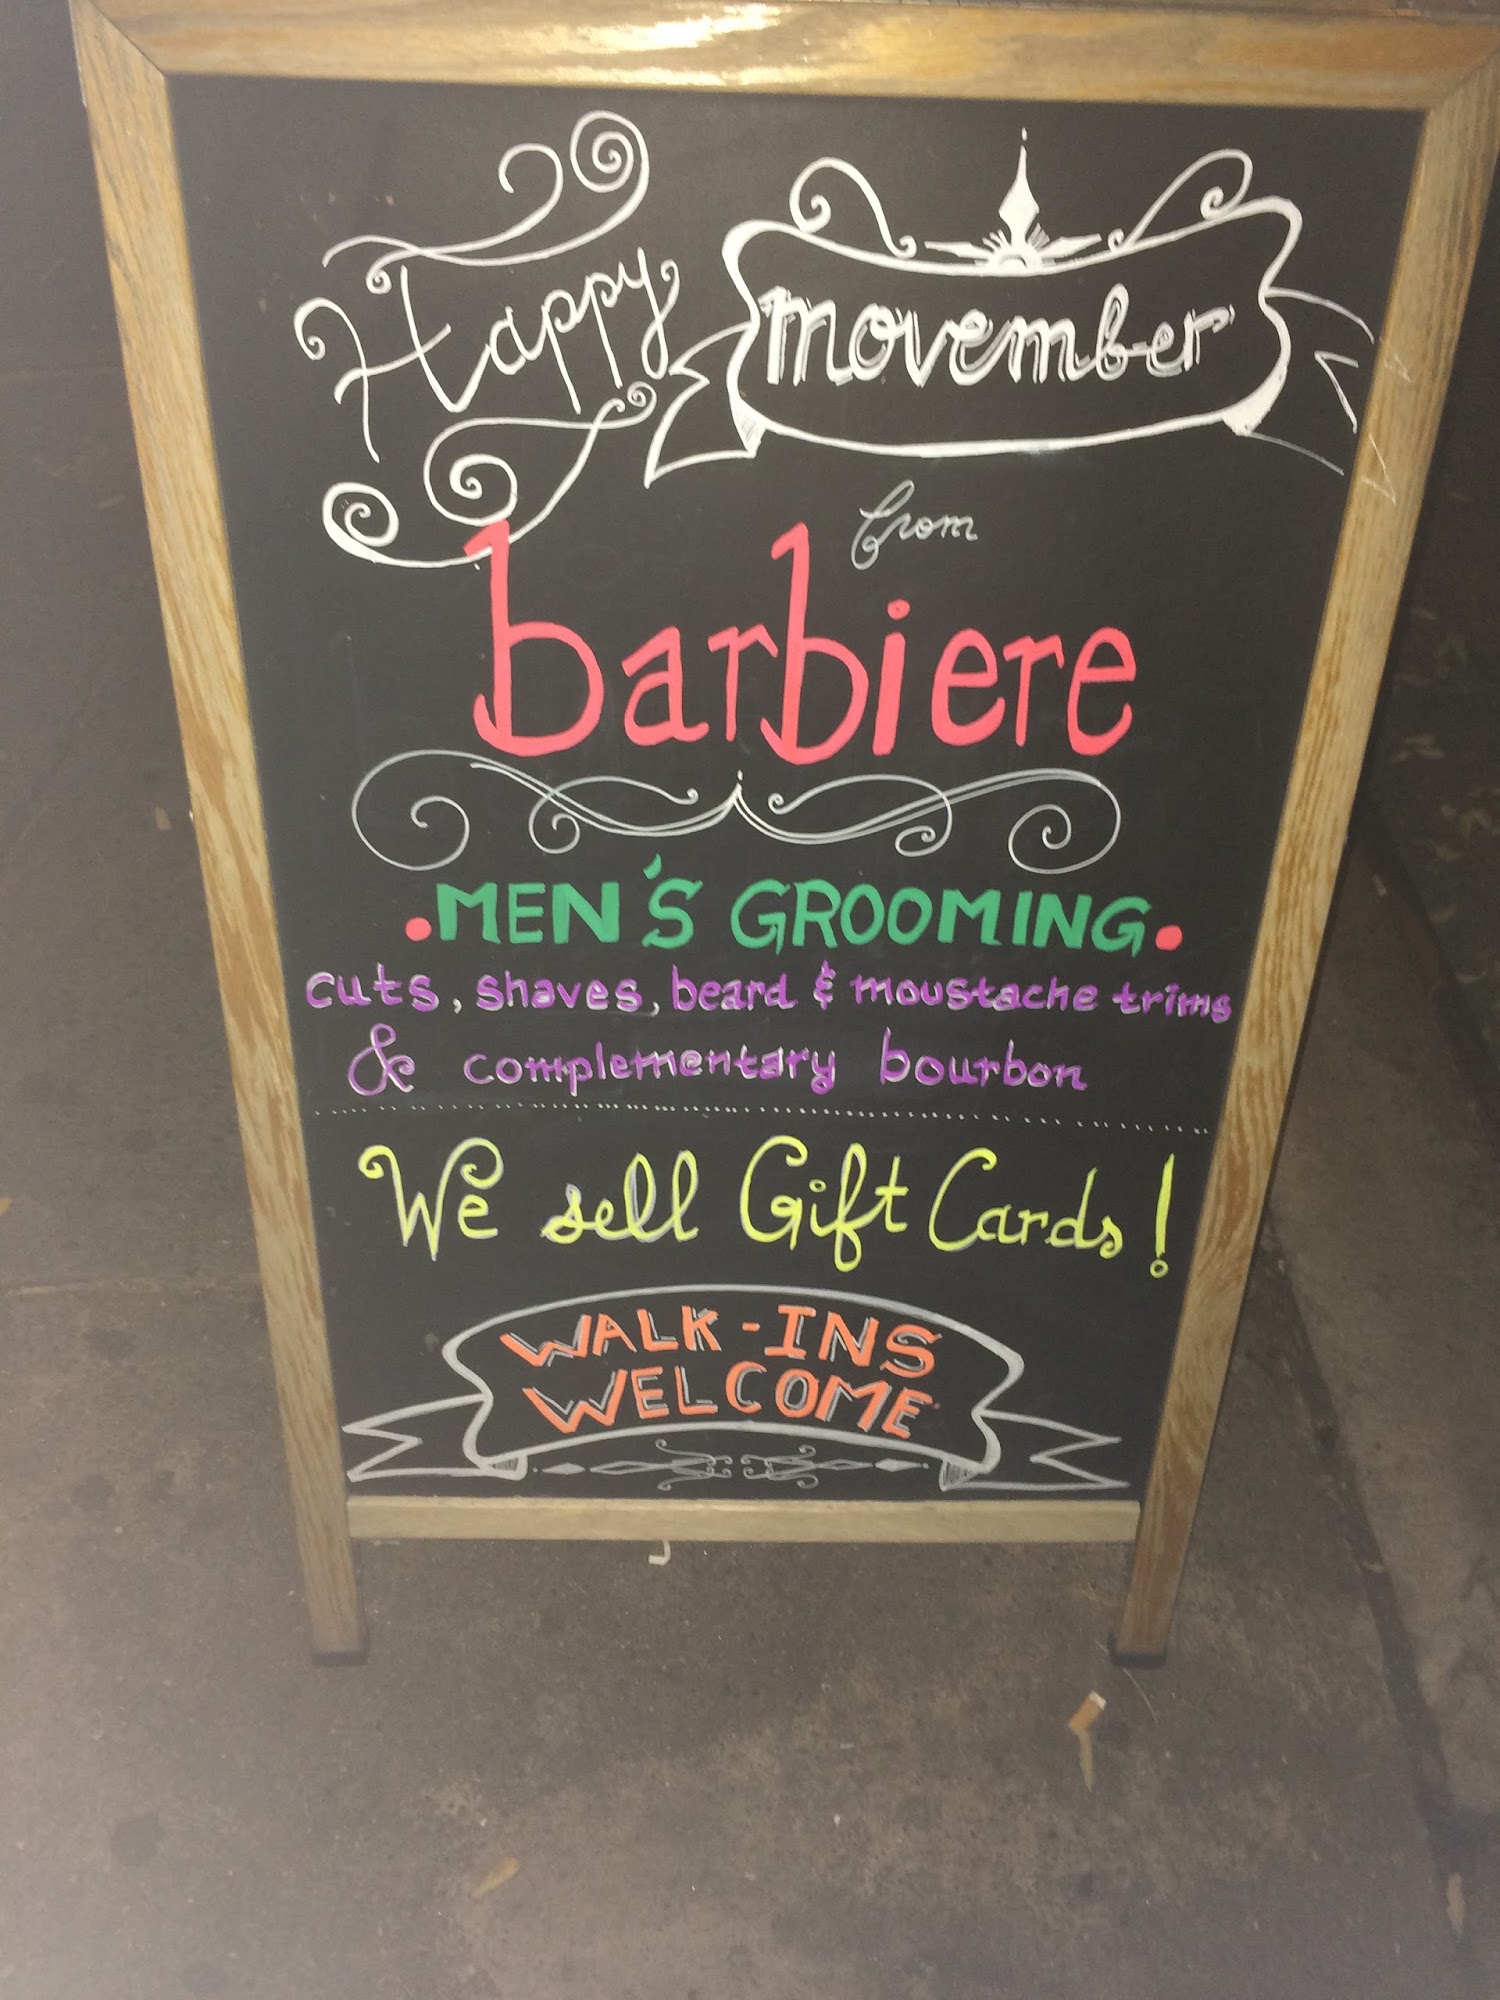 Happy movember
from
barbiere
MEN'S GROOMING
cuts, shaves, beard & moustache trims
& complementary bourbon
We sell Gift Cards!
WALK-INS
WELCOME